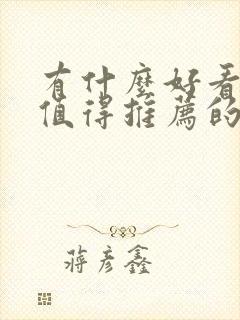 有什麼好看
值得推薦的
蔣彥鑫